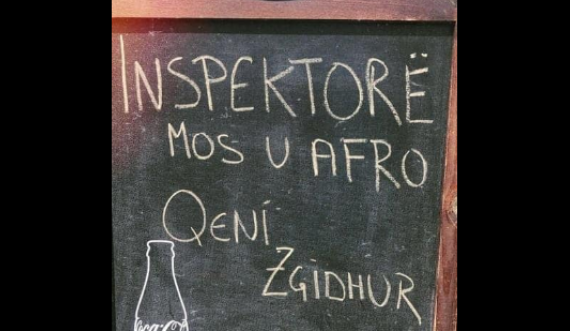 INSPEKTORË
MOS U AFRO
QENÍ
ZGIDHUR